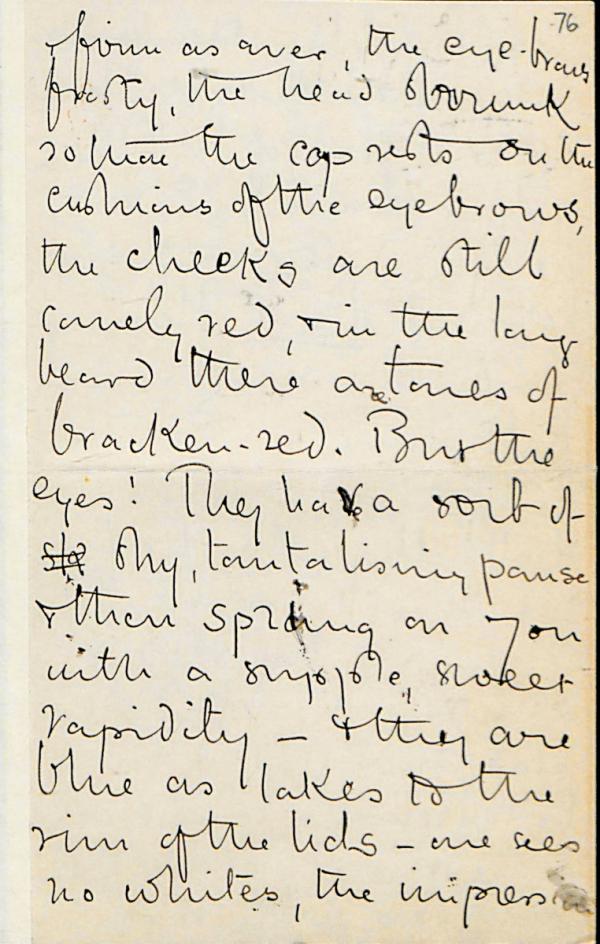 76
& firm as ever, the eye-brows
frosty, the head shrunk
so that the cap rests on the
cushions of the eyebrows,
the cheeks are still
comely red, & in the long
beard there are tones of
bracken-red. But the
eyes! They have a sort of
shy, tantalising pause
& then spring on you
with a supple, sweet
rapidity – & they are
blue as lakes to the
rim of the lids – one sees
no whites, the impression